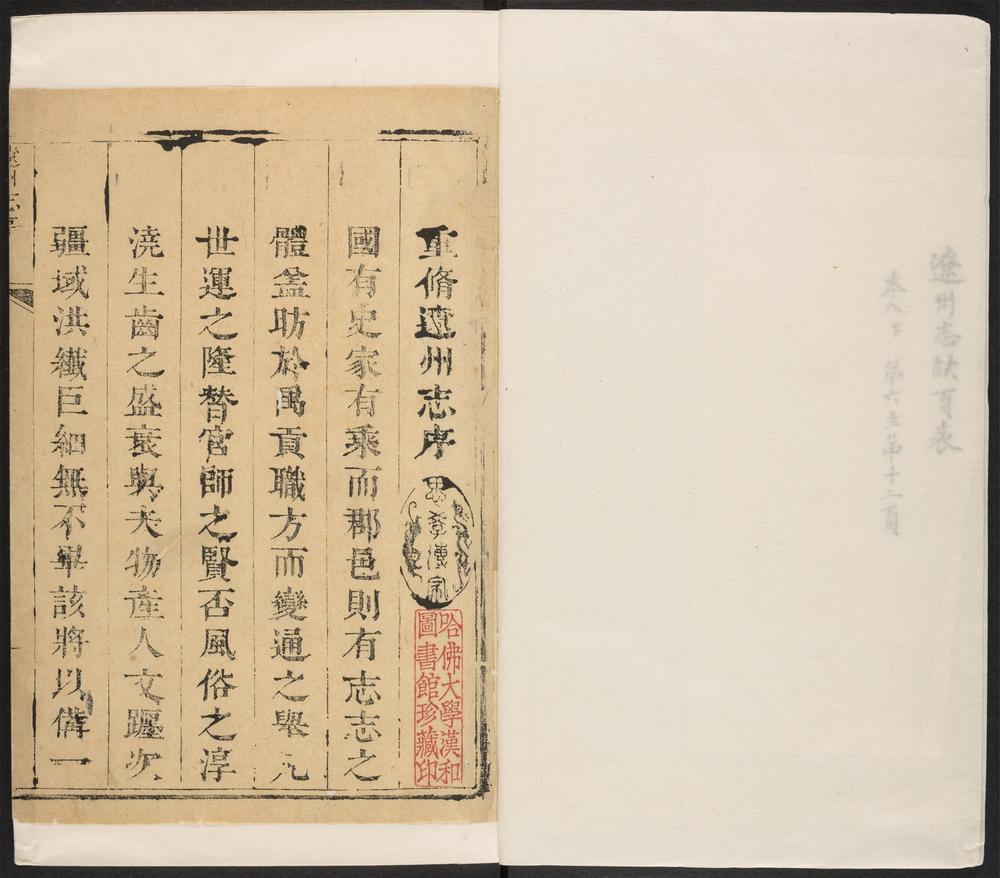 遼州志缺頁表
卷八下 第六至第十二頁
重脩遼州志序
忠孝傳家
哈佛大學漢和
圖書館珍藏印
國有史家有乘而郡邑則有志志之
體葢昉於禹貢職方而變通之舉凡
世運之隆替官師之賢否風俗之淳
澆生齒之盛衰與夫物產人文躔次
疆域洪纖巨細無不畢該將以備一
遼州志序